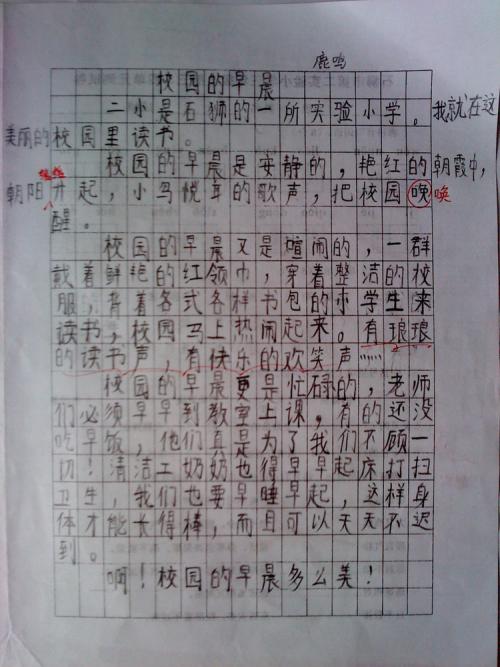 鹿鸣
校园的早晨
二小是石狮的一所实验小学。我就在这
美丽的校园里读书。
校园的早晨是安静的，艳红的朝霞中，
朝阳升起，小鸟悦耳的歌声，把校园晚唤
醒。
校园的早晨又是喧闹的，一群
戴着鲜艳的红领巾，穿着整洁的校
服，背着各式各样书包的小学生来
读书，校园马上热闹起来。有琅琅
的读书声，有快乐的欢笑声……
校园的早晨更是忙碌的，老师
们必须早早到教室上课，有的还没
吃早饭，他们真是为了我们不顾一
切！清洁工奶奶也得早早起床打扫
卫生，我们也要早睡早起，这样身
体才能长得棒，而且可以天天不迟
到。
啊！校园的早晨多么美！